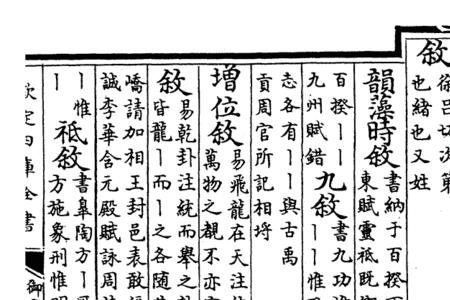 敘
徐呂切次第
也緒也又姓
韻藻時敘
書納于百揆
東賦靈祗既
百揆丨丨
九州賦錯
九敘
書九功惟
丨丨惟
志各有丨丨與古禹
貢周官所記相埒
增位敘
易飛龍在天注
萬物之覩不亦
敘
易乾卦注統而舉之
皆龍丨而丨之各隨
嶠請加相王封邑表敢
誠李華含元殿賦詠周
丨惟
丨
祗敘
書皋陶方丨
方施象刑惟
欽定四庫全書
御